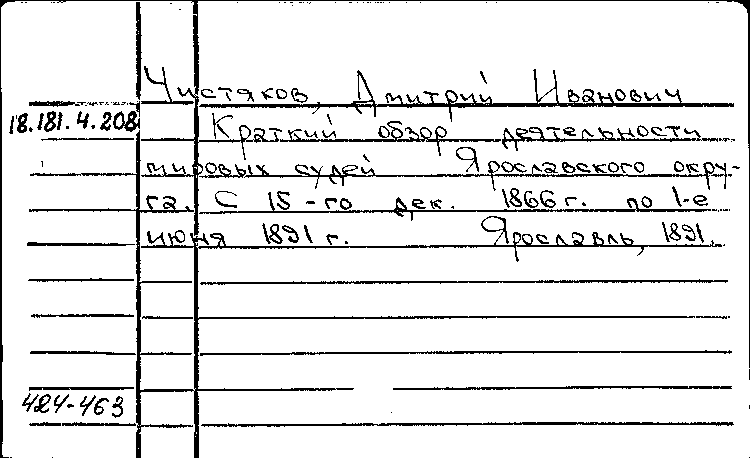 Чистяков, Дмитрий Иванович
18.181.4.208
Краткий обзор деятельности
мировых судей Ярославского окру-
га. С 15-го дек. 1866 г. по 1-е
июня 1891 г. Ярославль, 1891.
424-463